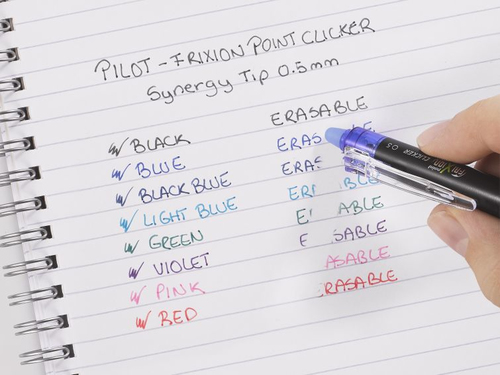 PILOT - FRIXION POINT CLICKER
Synergy Tip 0.5mm
ERASABLE
BLACK
BLUE ERAS LE
BLACK BLUE ERAS
LIGHT BLUE ER BLE
GREEN E ABLE
VIOLET E SABLE
PINK ASABLE
RED RASABLE
FRIXION CLICKER 0.5